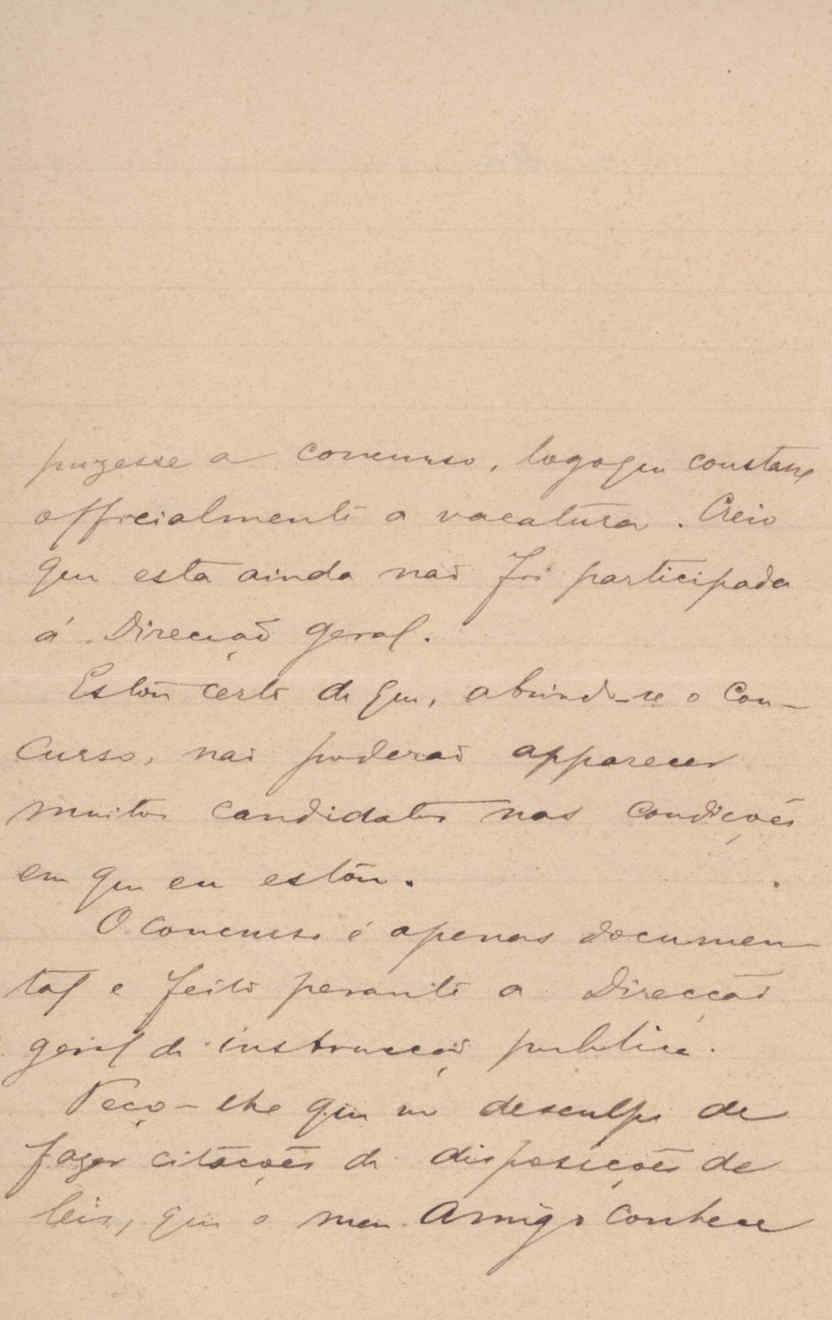 puzesse a concurso, logo que constasse
officialmente a vacatura. Creio
que esta ainda não foi participada
á Direcção geral.
Estou certo de que, abrindo-se o con-
curso, não poderão apparecer
muitos candidatos nas condições
em que eu estou.
O concurso é apenas documen-
tal e feito perante a Direcção
geral de instrucção publica.
Peço-lhe que me desculpe de
fazer citações de disposições de
leis, que o meu Amigo conhece